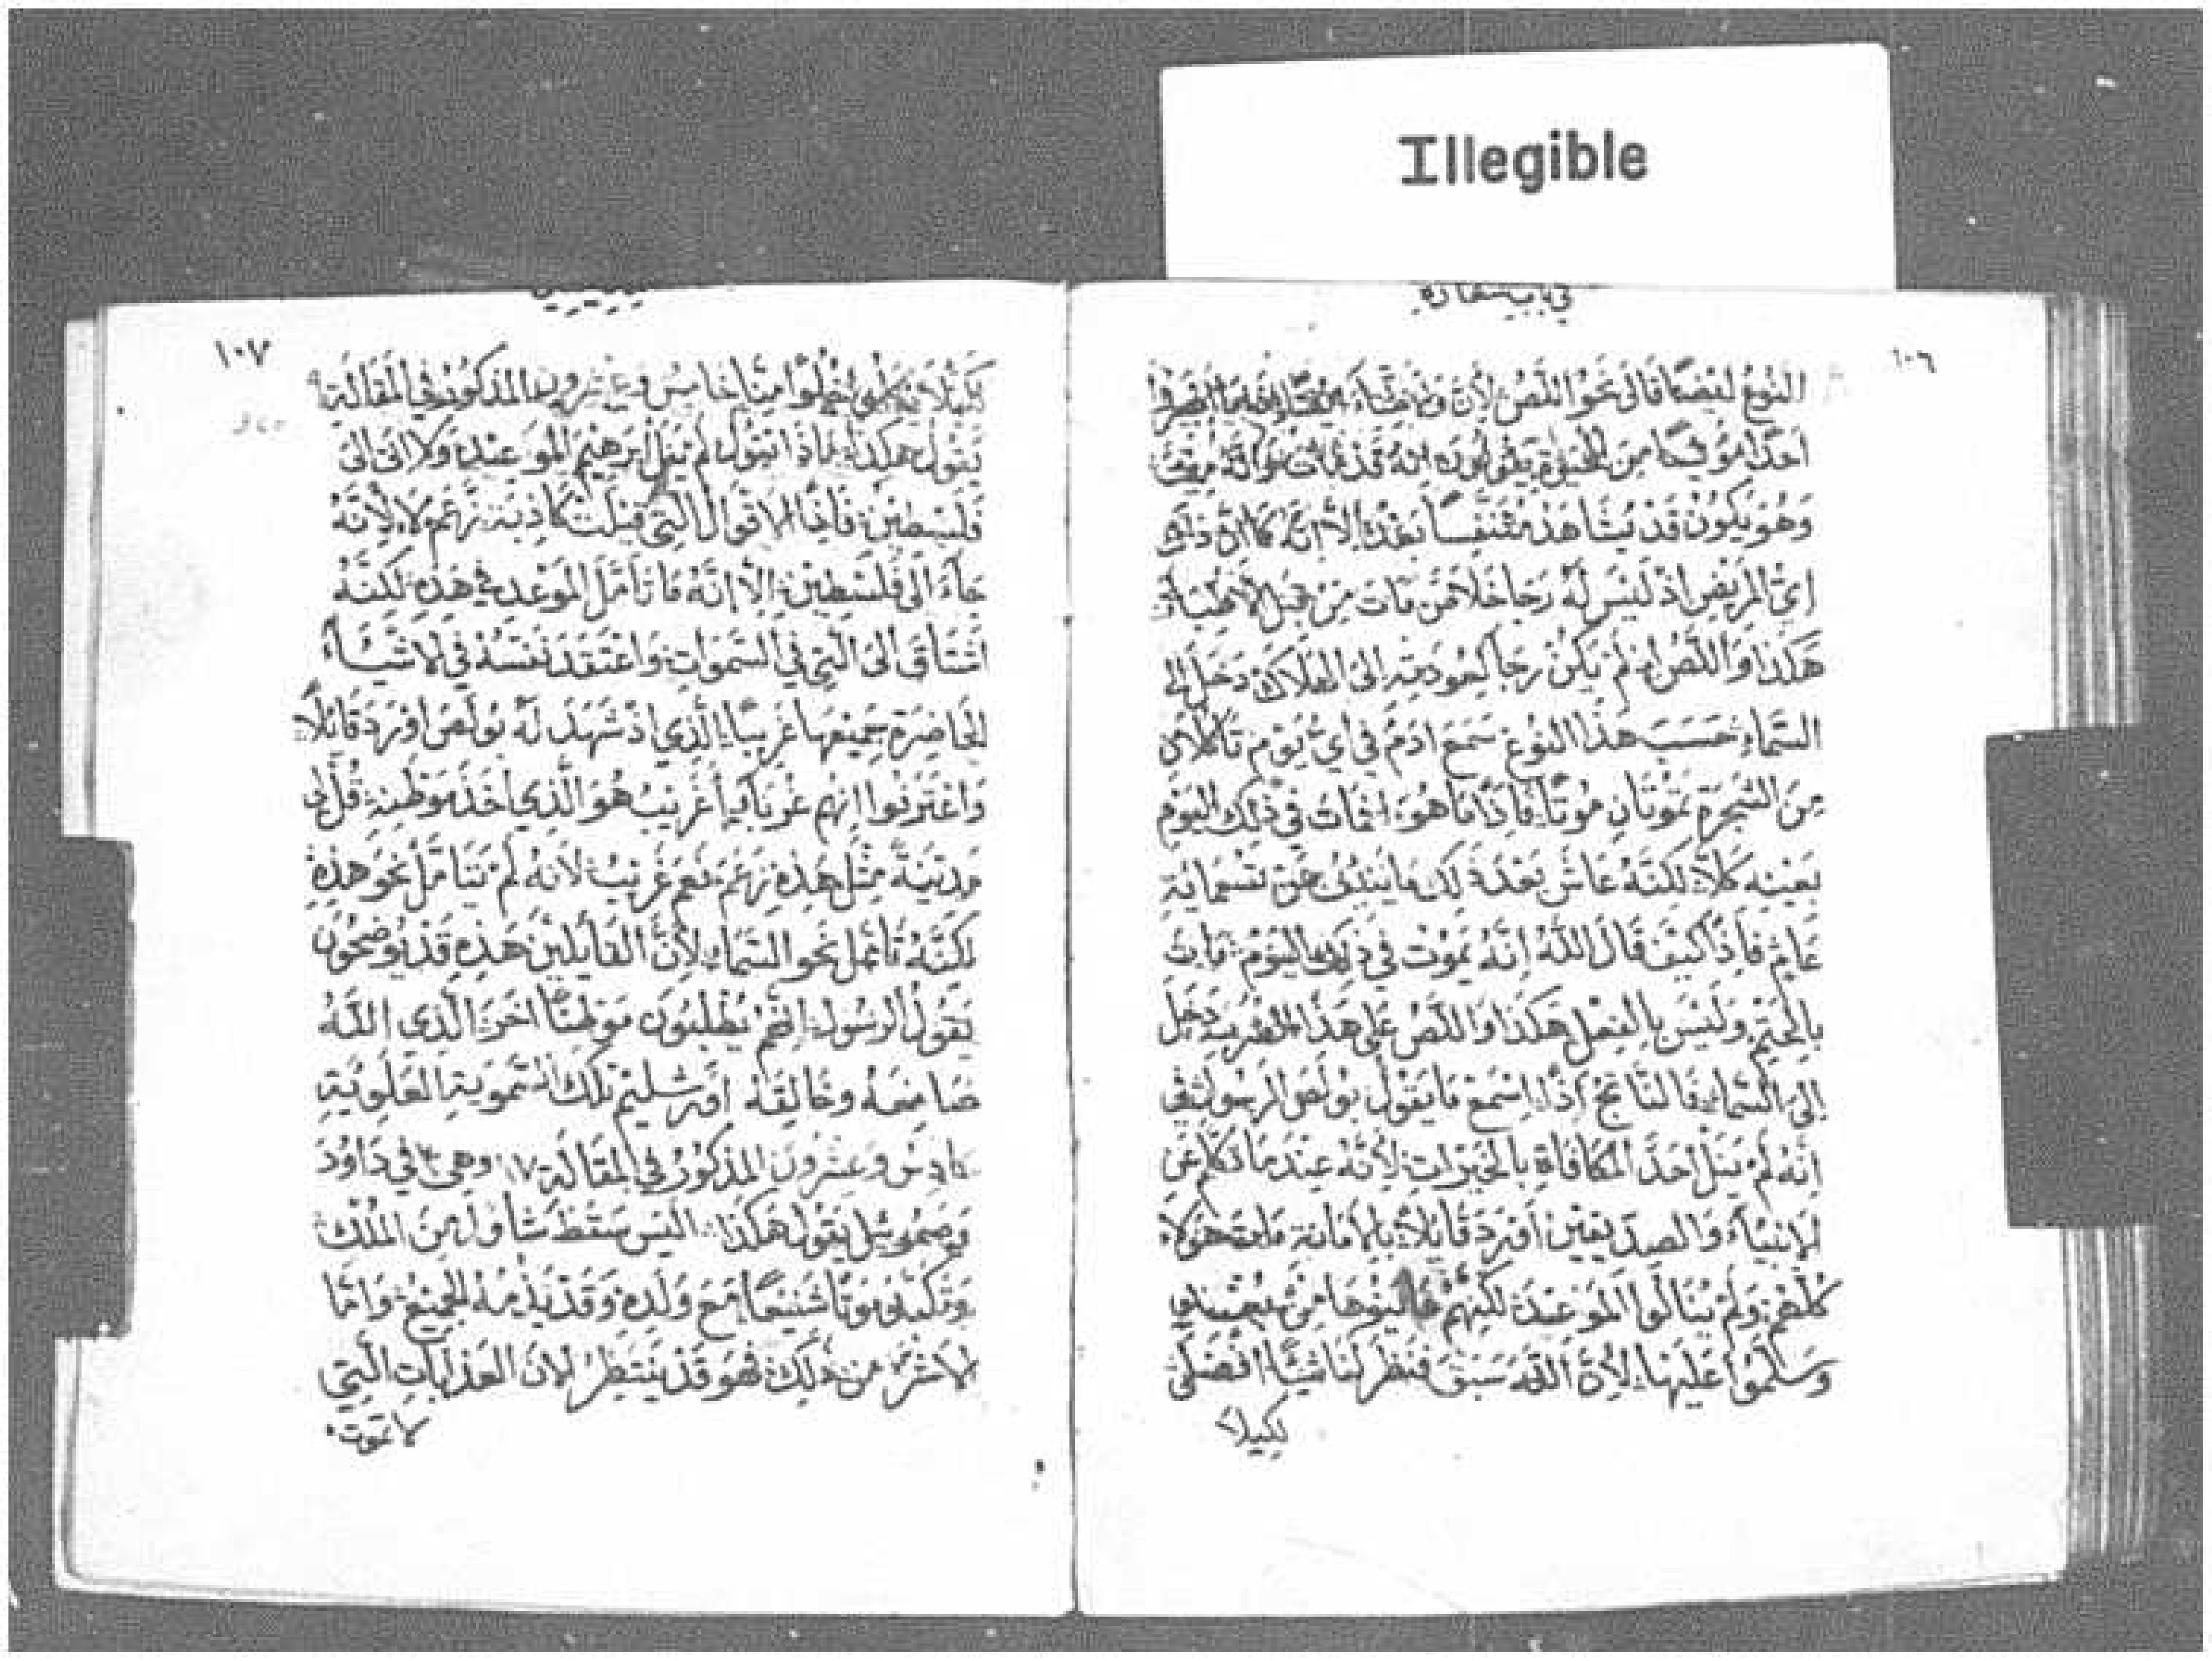 Illegible
١٠٦
النوع ايضًا قال نحو اللص لأن
احدًا من الحيوة يقولون انه قد مات
وَهُوَ يَكُون قد يشاهد متنفسًا بعد إلا انه كما ان ذلك
اي المريض اذ ليس له رجا خلاص مات من قبل الاطباء
هكذا واللص اذ لم يكن رجا لعودته الى الهلاك دخل الى
السماء حسب هذا النوع سمع ادم في اي يوم تأكلان
من الشجرة تموتان موتًا فاذًا ما هو مات في ذلك اليوم
بعينه كلا لكنه عاش بعد ذلك ما ينيف عن تسعماية
عام فاذًا كيف قال الله انه يموت في ذلك اليوم مات
بالحتم وليس بالفعل هكذا واللص على هذا الضرب دخل
الى السماء فالناتج اذًا اسمع ما يقول بولص الرسول في
انه لم ينل احد المكافاة بالخيرات لأنه عندما تكلم عن
الانبياء والصديقين اورد قائلًا بالامانة مات هولاء
كلهم ولم ينالوا الموعدة لكنهم عاينوها من بعيد
وسلموا عليها لأن الله سبق فنظر لنا شيئًا افضل
لكيلا
١٠٧
لكيلا يكملوا منا خامس وعشرون المذكور في المقالة
يقول هكذا ماذا تقول لم ينل ابرهيم الموعدة ولا اتى الى
فلسطين فاذًا الاقوال التي قيلت كاذبة زعم لا لأنه
جاء الى فلسطين إلا انه ما تأمل الموعد في هذه لكنه
اشتاق الى التي في السموات واعتقد نفسه في الاشياء
الحاضرة جميعها غريبًا الذي اذ شهد له بولص اورد قائلًا
واعترفوا انهم غرباء أغريب هو الذي اخذ موطنه قل لي
مدينة مثل هذه زعم نعم غريب لانه لم يتأمل نحو هذه
لكنه تأمل نحو السماء لأن القايلين هذه قد يوضحون
يقول الرسول انهم يطلبون موطنًا اخر الذي الله
صانعه وخالقه اورشليم تلك السموية العلوية
سادس وعشرون المذكور في المقالة ١٧ وهي في داود
وصموئيل يقول هكذا اليس سقط شاول من الملك
وتكبد موتًا شنيعًا مع ولده وقد يذمه الجميع واما
الاشر من ذلك فهو قد ينتظر الان العذابات التي
لا تموت